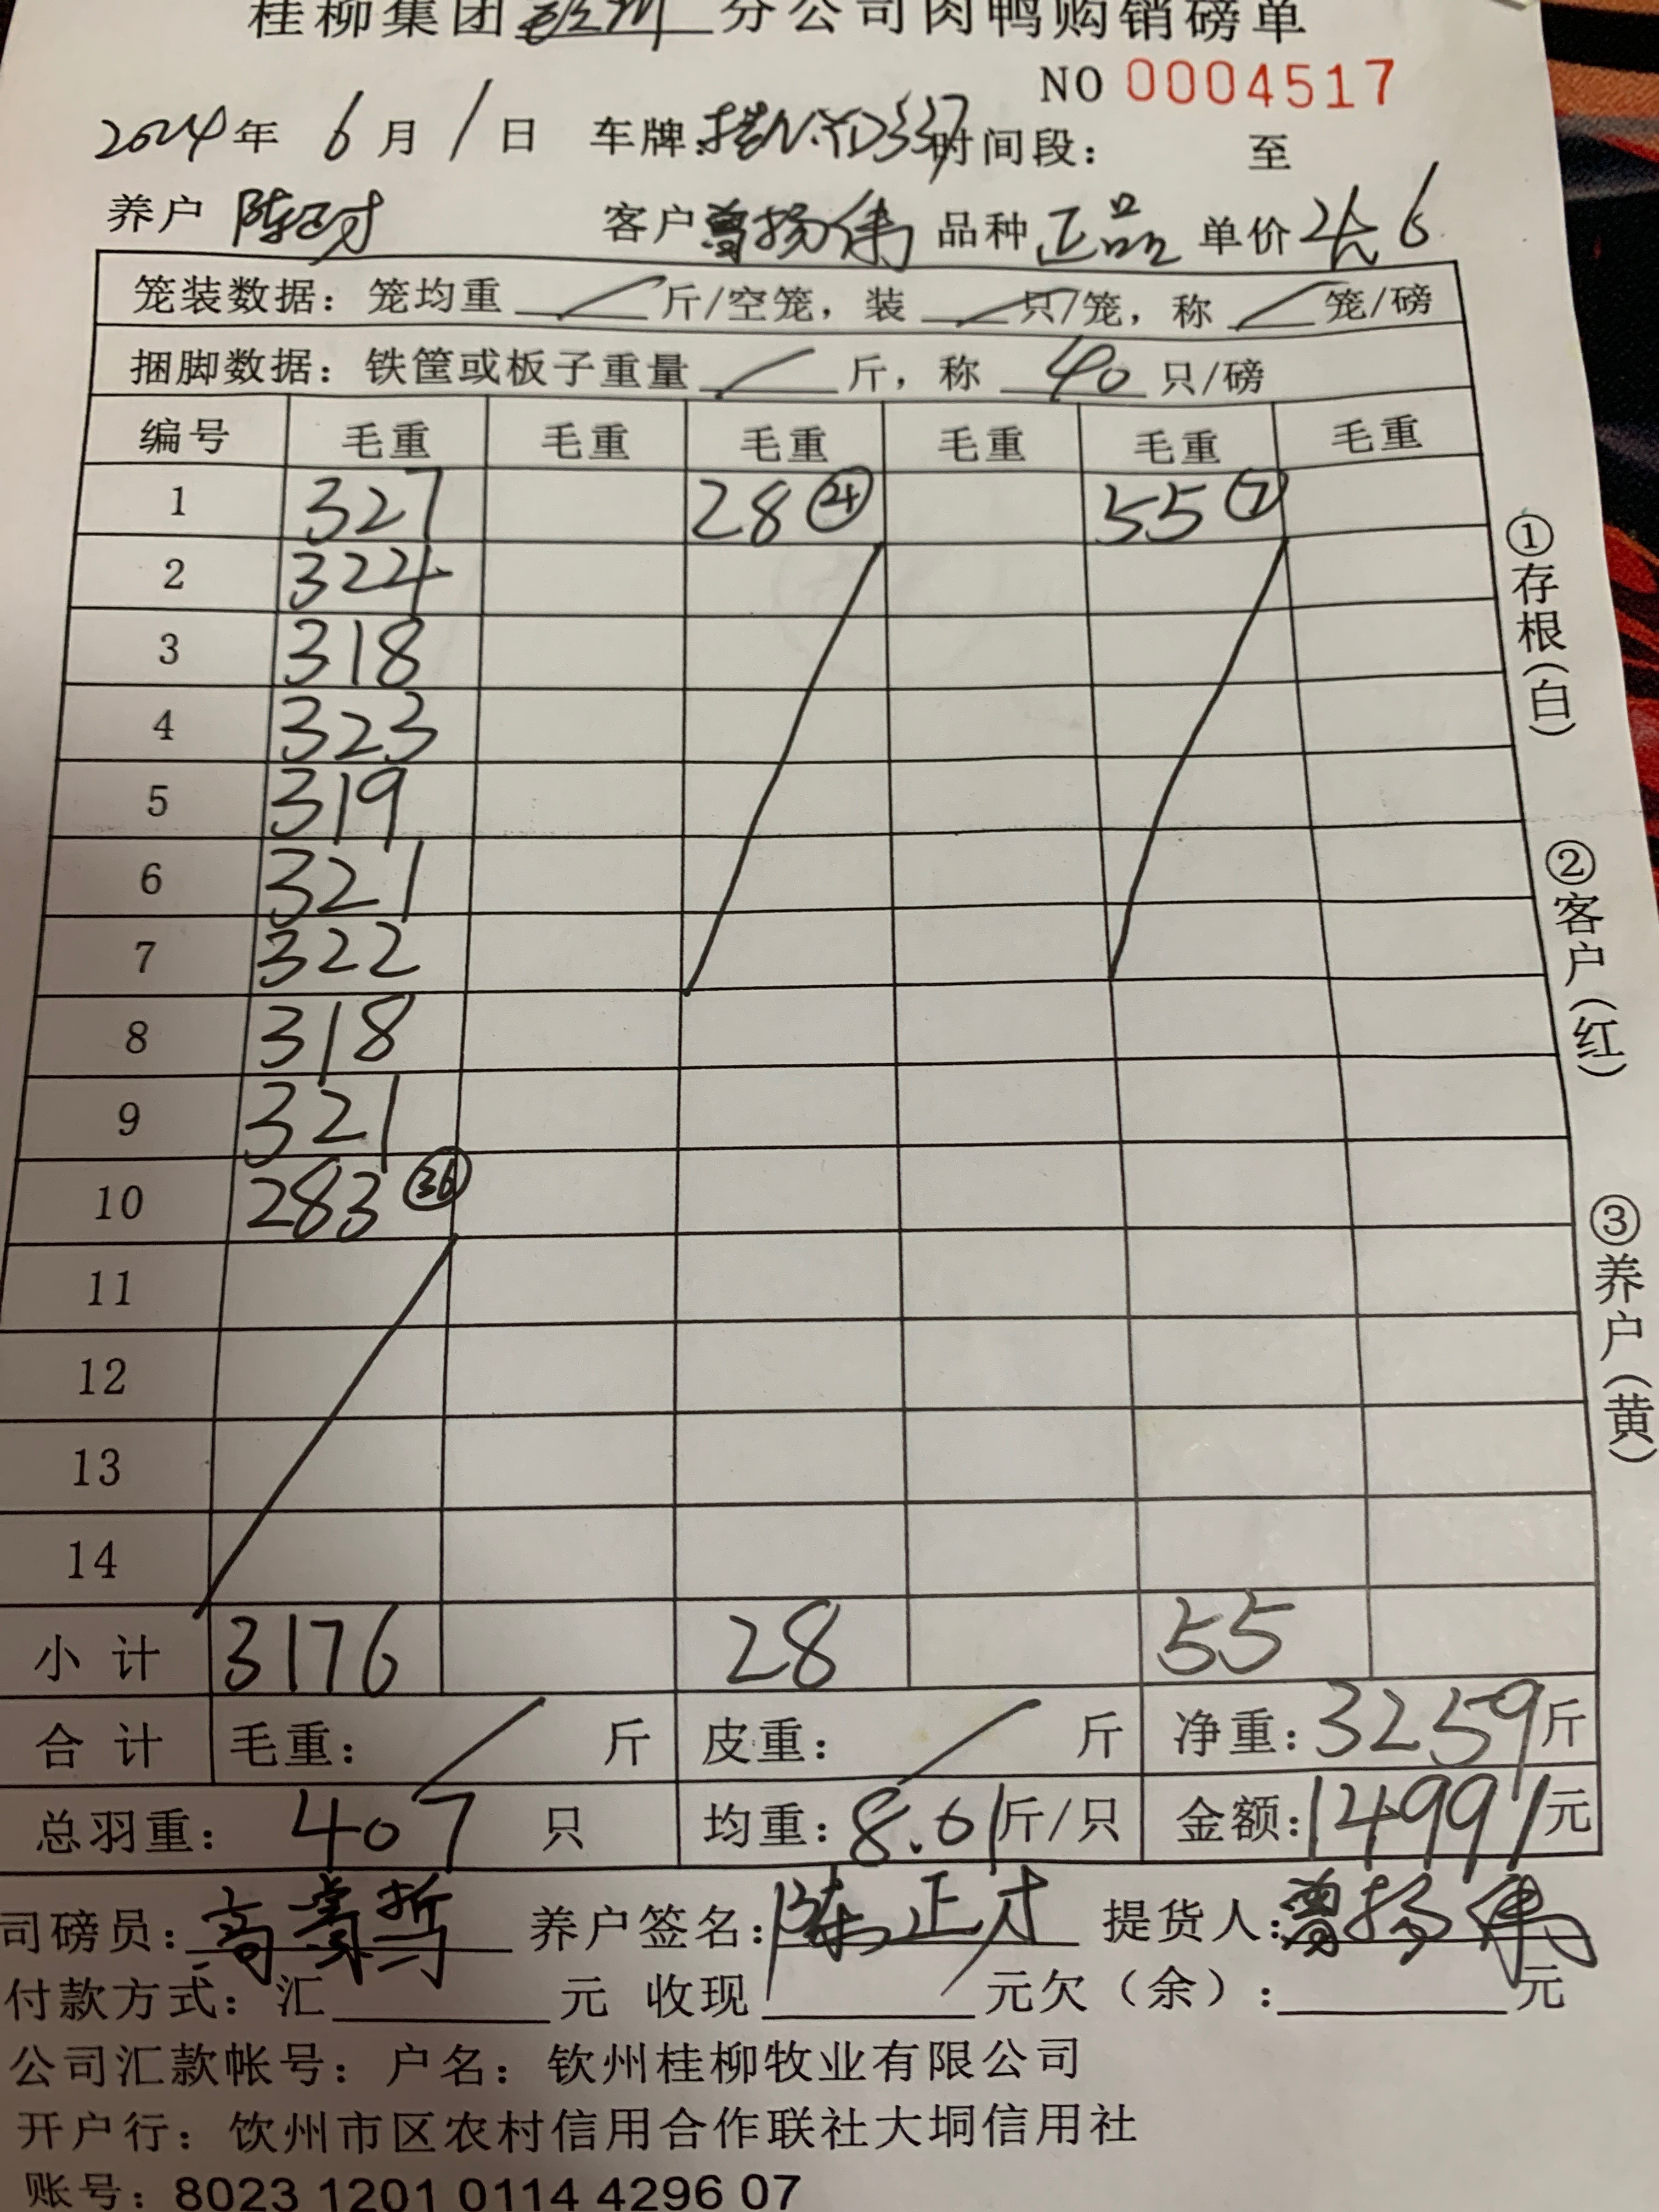 桂柳集团 分公司肉鸭购销磅单
NO 0004517
2024年 6月 1日 车牌: 时间段: 至
养户 陈正才 客户 曾扬伟 品种 正品 单价
笼装数据: 笼均重 / 斤/空笼, 装 / 只/笼, 称 / 笼/磅
捆脚数据: 铁筐或板子重量 / 斤, 称 40 只/磅
编号 毛重 毛重 毛重 毛重 毛重 毛重
1 327 28 ④ 55 ⑦
2 324
3 318
4 323
5 319
6 321
7 322
8 318
9 321
10 283 ㊱
11
12
13
14
小计 3176 28 55
合计 毛重: / 斤 皮重: / 斤 净重: 3259斤
总羽重: 407 只 均重: 8.01斤/只 金额: 14991元
司磅员: 高 哲 养户签名: 陈正才 提货人: 曾扬伟
付款方式: 汇 元 收现 元欠(余): 元
公司汇款帐号: 户名: 钦州桂柳牧业有限公司
开户行: 钦州市区农村信用合作联社大垌信用社
账号: 8023 1201 0114 4296 07
①存根(白)
②客户(红)
③养户(黄)